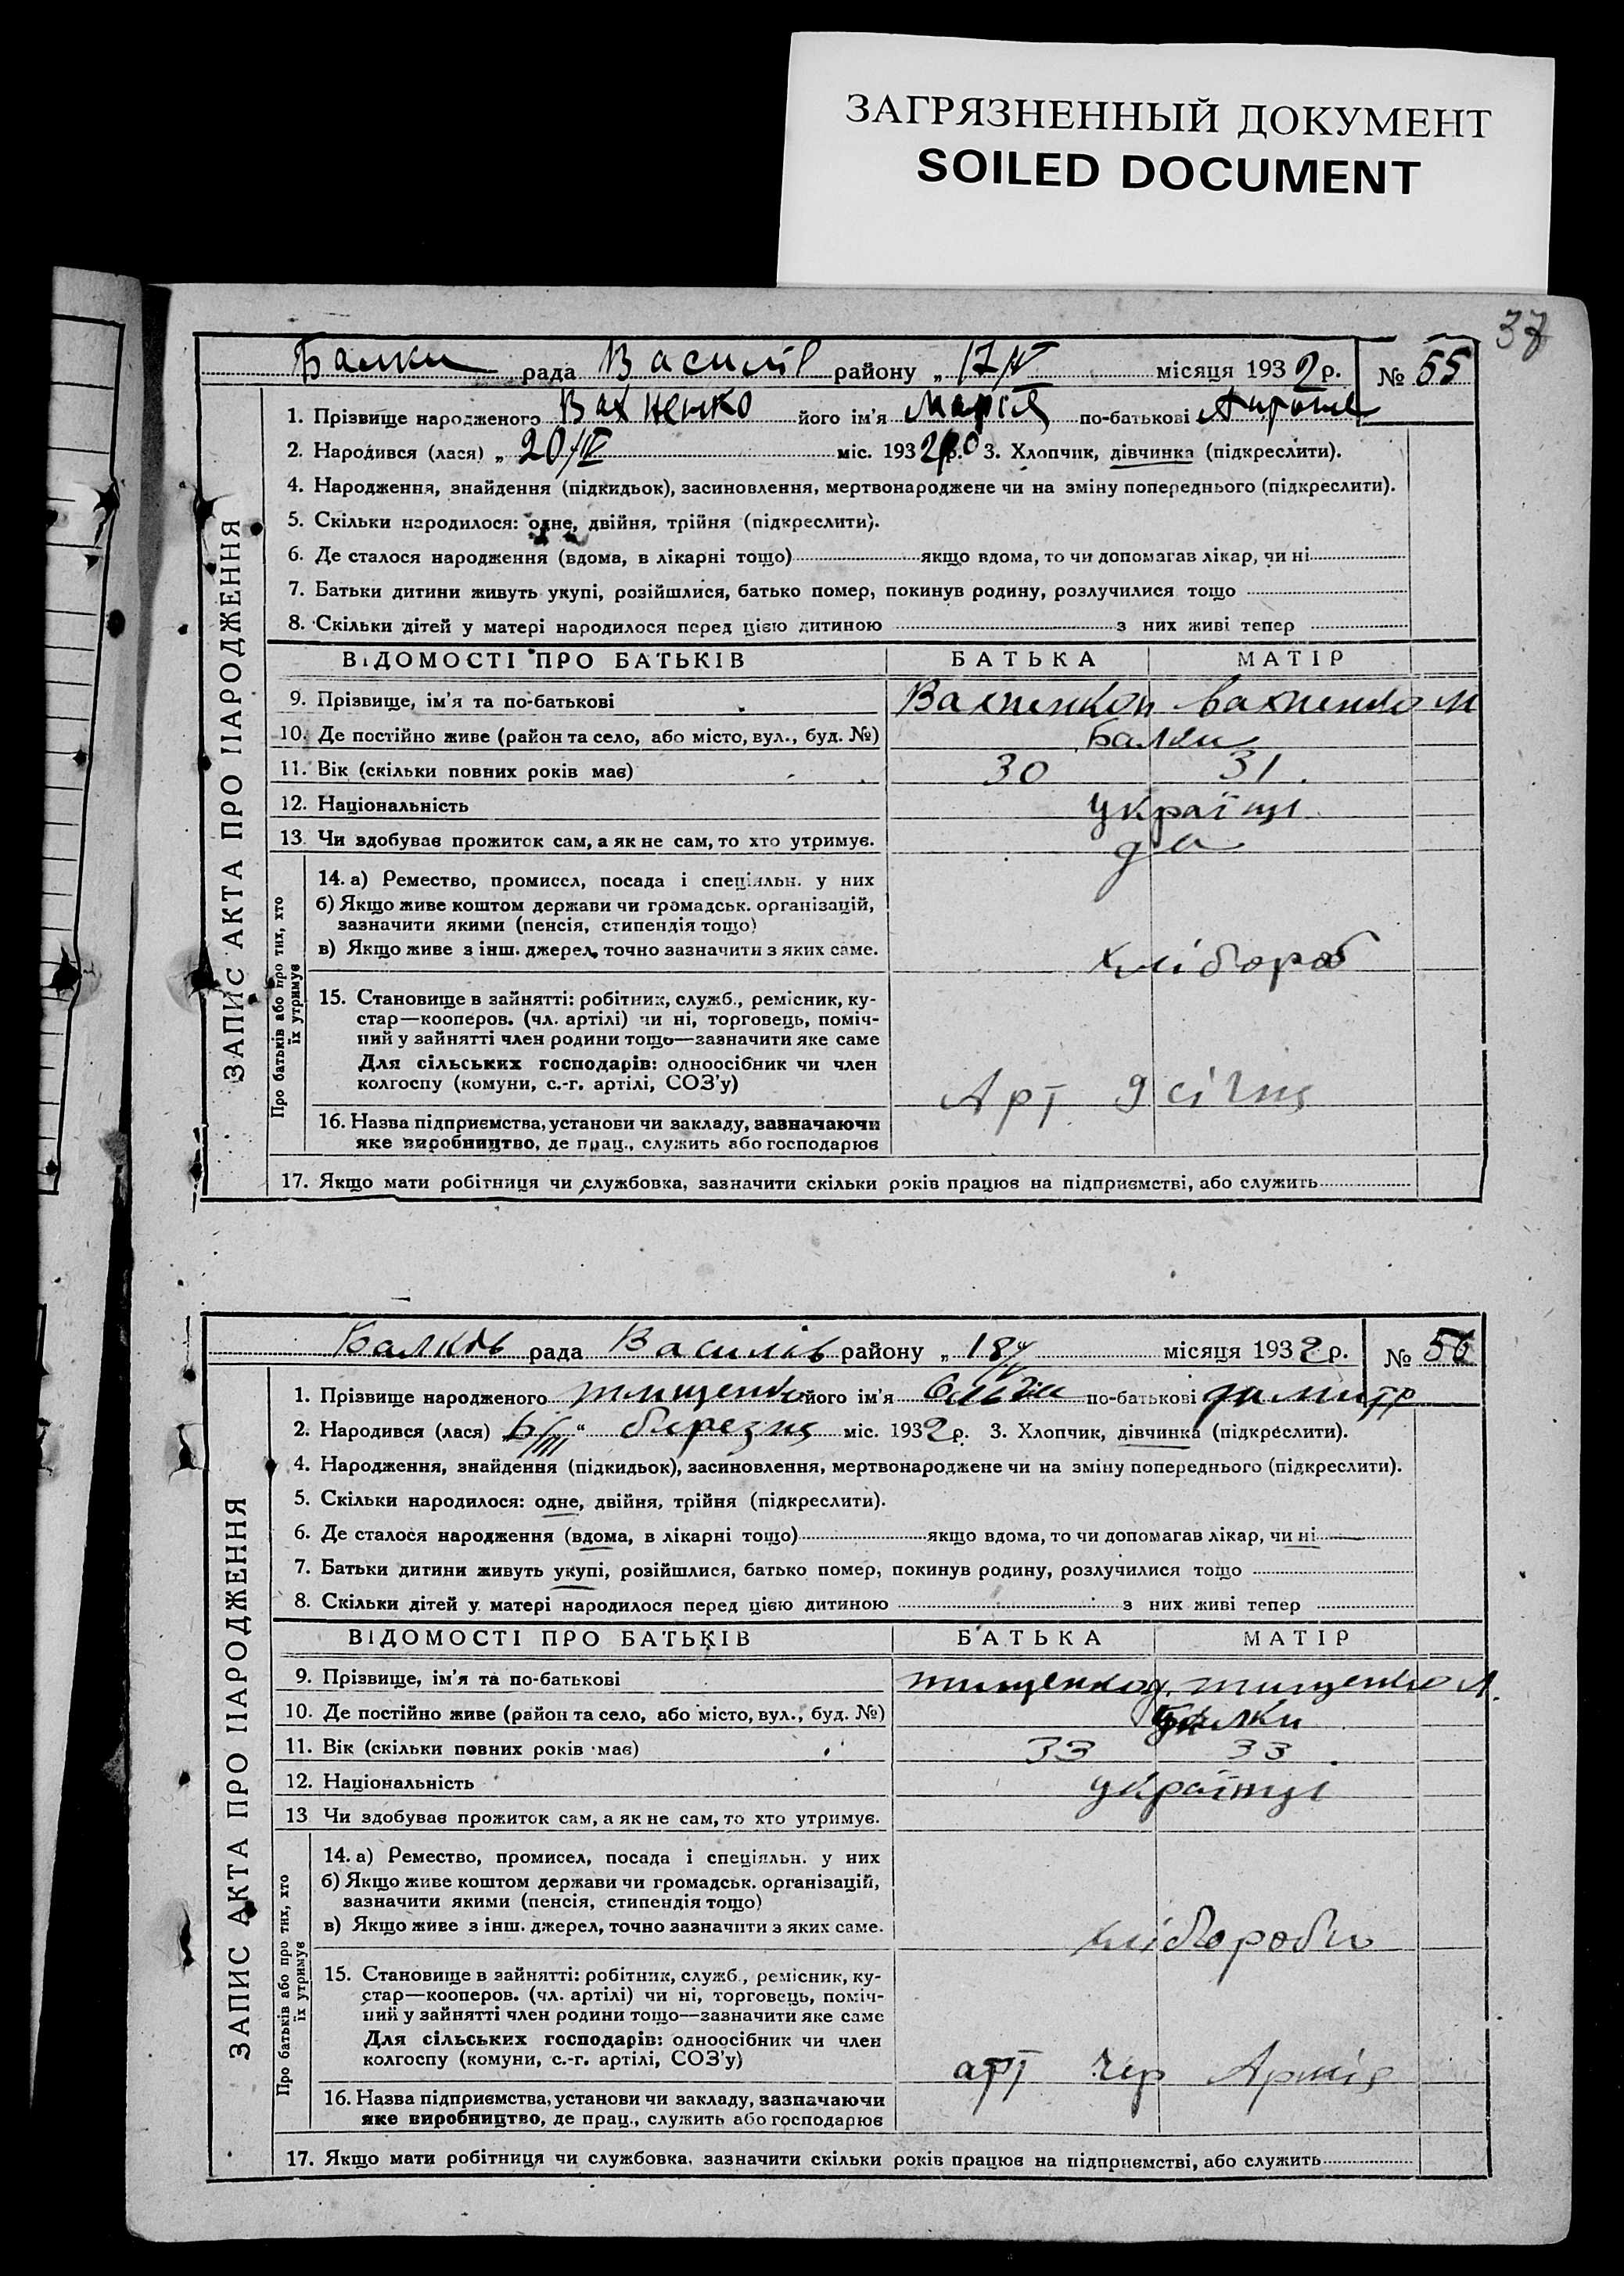 ЗАГРЯЗНЕННЫЙ ДОКУМЕНТ
SOILED DOCUMENT
37
Балки рада Василів району „ 17/IV місяця 1932 р. № 55
1. Прізвище народженого Вахненко його ім'я Марія по-батькові
2. Народився (лася) „ 20/IV міс. 1932 р. 3. Хлопчик, дівчинка (підкреслити).
4. Народження, знайдення (підкидьок), засиновлення, мертвонароджене чи на зміну попереднього (підкреслити).
5. Скільки народилося: одне, двійня, трійня (підкреслити).
6. Де сталося народження (вдома, в лікарні тощо) якщо вдома, то чи допомагав лікар, чи ні
7. Батьки дитини живуть укупі, розійшлися, батько помер, покинув родину, розлучилися тощо
8. Скільки дітей у матері народилося перед цією дитиною з них живі тепер
ВІДОМОСТІ ПРО БАТЬКІВ БАТЬКА МАТІР
9. Прізвище, ім'я та по-батькові Вахненко Вахненко М
10. Де постійно живе (район та село, або місто, вул., буд. №) Балки
11. Вік (скільки повних років має) 30 31
12. Національність українці
13. Чи здобував прожиток сам, а як не сам, то хто утримує. да
14. а) Ремество, промисел, посада і спеціяльн. у них
б) Якщо живе коштом держави чи громадськ. організацій,
зазначити якими (пенсія, стипендія тощо)
в) Якщо живе з інш. джерел, точно зазначити з яких саме. хлібороб
15. Становище в зайнятті: робітник, служб., ремісник, ку-
стар—кооперов. (чл. артілі) чи ні, торговець, поміч-
ний у зайнятті член родини тощо—зазначити яке саме
Для сільських господарів: одноосібник чи член
колгоспу (комуни, с.-г. артілі, СОЗ'у) Арт 9 січня
16. Назва підприємства, установи чи закладу, зазначаючи
яке виробництво, де прац., служить або господарює
17. Якщо мати робітниця чи службовка, зазначити скільки років працює на підприємстві, або служить
ЗАПИС АКТА ПРО НАРОДЖЕННЯ
Про батьків або про тих, хто
їх утримує
Балків рада Василів району „ 18/IV місяця 1932 р. № 56
1. Прізвище народженого Тищенко його ім'я Ольга по-батькові Димитр
2. Народився (лася) „ 6/III “ березня міс. 1932 р. 3. Хлопчик, дівчинка (підкреслити).
4. Народження, знайдення (підкидьок), засиновлення, мертвонароджене чи на зміну попереднього (підкреслити).
5. Скільки народилося: одне, двійня, трійня (підкреслити).
6. Де сталося народження (вдома, в лікарні тощо) якщо вдома, то чи допомагав лікар, чи ні
7. Батьки дитини живуть укупі, розійшлися, батько помер, покинув родину, розлучилися тощо
8. Скільки дітей у матері народилося перед цією дитиною з них живі тепер
ВІДОМОСТІ ПРО БАТЬКІВ БАТЬКА МАТІР
9. Прізвище, ім'я та по-батькові Тищенко д. Тищенко Л.
10. Де постійно живе (район та село, або місто, вул., буд. №) Балки
11. Вік (скільки повних років має) 33 33
12. Національність українці
13 Чи здобував прожиток сам, а як не сам, то хто утримує.
14. а) Ремество, промисел, посада і спеціяльн. у них
б) Якщо живе коштом держави чи громадськ. організацій,
зазначити якими (пенсія, стипендія тощо)
в) Якщо живе з інш. джерел, точно зазначити з яких саме. хлібороби
15. Становище в зайнятті: робітник, служб., ремісник, ку-
стар—кооперов. (чл. артілі) чи ні, торговець, поміч-
ний у зайнятті член родини тощо—зазначити яке саме
Для сільських господарів: одноосібник чи член
колгоспу (комуни, с.-г. артілі, СОЗ'у) арт Чер Армія
16. Назва підприємства, установи чи закладу, зазначаючи
яке виробництво, де прац., служить або господарює
17. Якщо мати робітниця чи службовка, зазначити скільки років працює на підприємстві, або служить
ЗАПИС АКТА ПРО НАРОДЖЕННЯ
Про батьків або про тих, хто
їх утримує